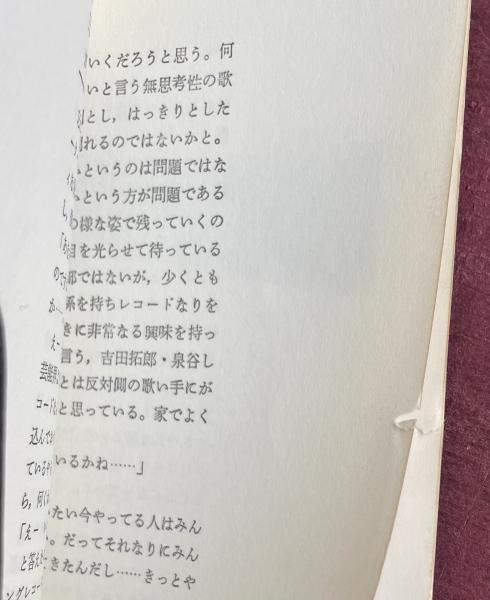 いくだろうと思う。何
いと言う無思考性の歌
とし，はっきりとした
れるのではないかと。
というのは問題ではな
という方が問題である
様な姿で残っていくの
目を光らせて待っている
部ではないが，少くとも
系を持ちレコードなりを
きに非常なる興味を持っ
言う，吉田拓郎・泉谷し
とは反対側の歌い手にが
と思っている。家でよく
いるかね……」
たい今やってる人はみん
。だってそれなりにみん
きたんだし……きっとや
し、
「お
ので
か
え
芸能界
コード
込んで
ている
ら，何
「えー
と答え
ングレコー